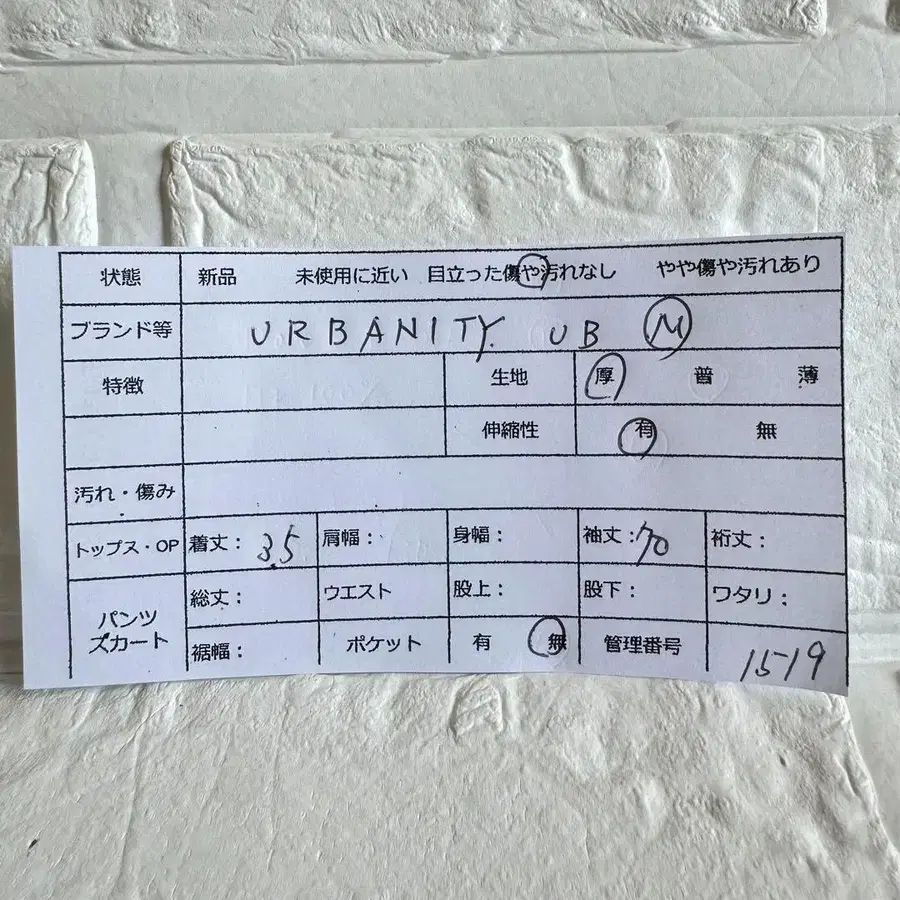 状態 新品 未使用に近い 目立った傷や汚れなし やや傷や汚れあり
ブランド等 URBANITY. UB M
特徴 生地 厚 普 薄
伸縮性 有 無
汚れ・傷み
トップス・OP 着丈: 35 肩幅: 身幅: 袖丈:70 裄丈:
パンツ スカート 総丈: ウエスト 股上: 股下: ワタリ:
裾幅: ポケット 有 無 管理番号 1519